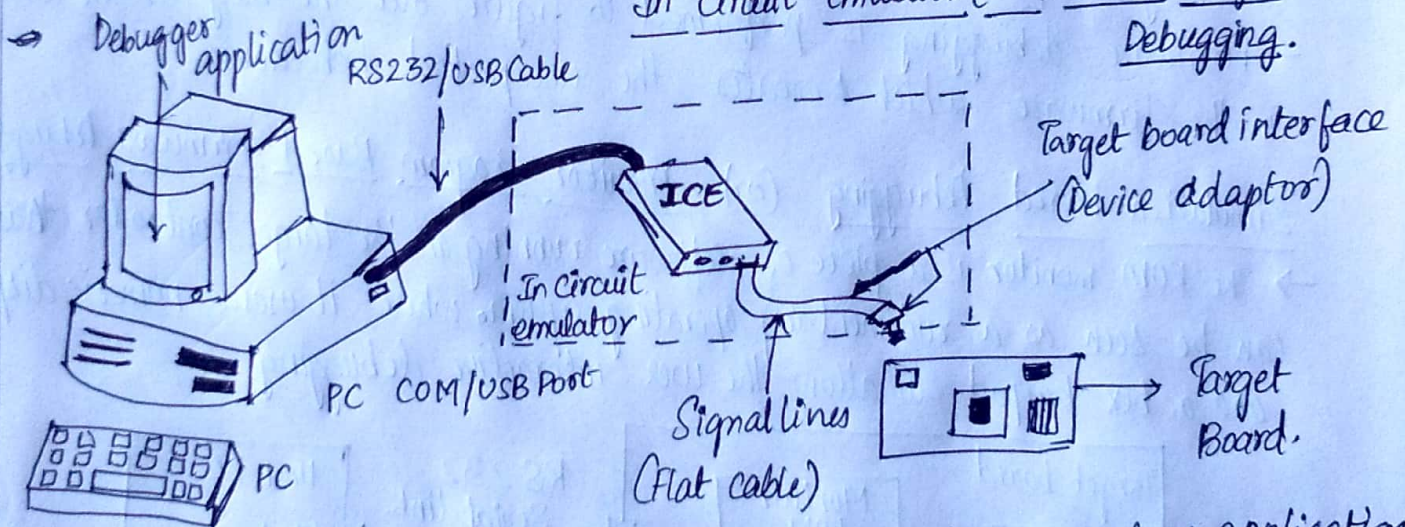 In Circuit
Debugging.
Debugger
application
RS232/USB Cable
Target board interface
(Device adaptor)
ICE
In Circuit
emulator
PC COM/USB Port
Signal lines
(Flat cable)
Target
Board.
PC
application